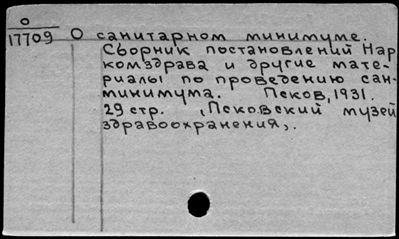 0
17709 О санитарном минимуме.
Сборник постановлений Нар
комздрава и другие мате-
риалы по проведению сан-
минимума. Псков, 1931.
29 стр. (Псковский музей
здравоохранения,.